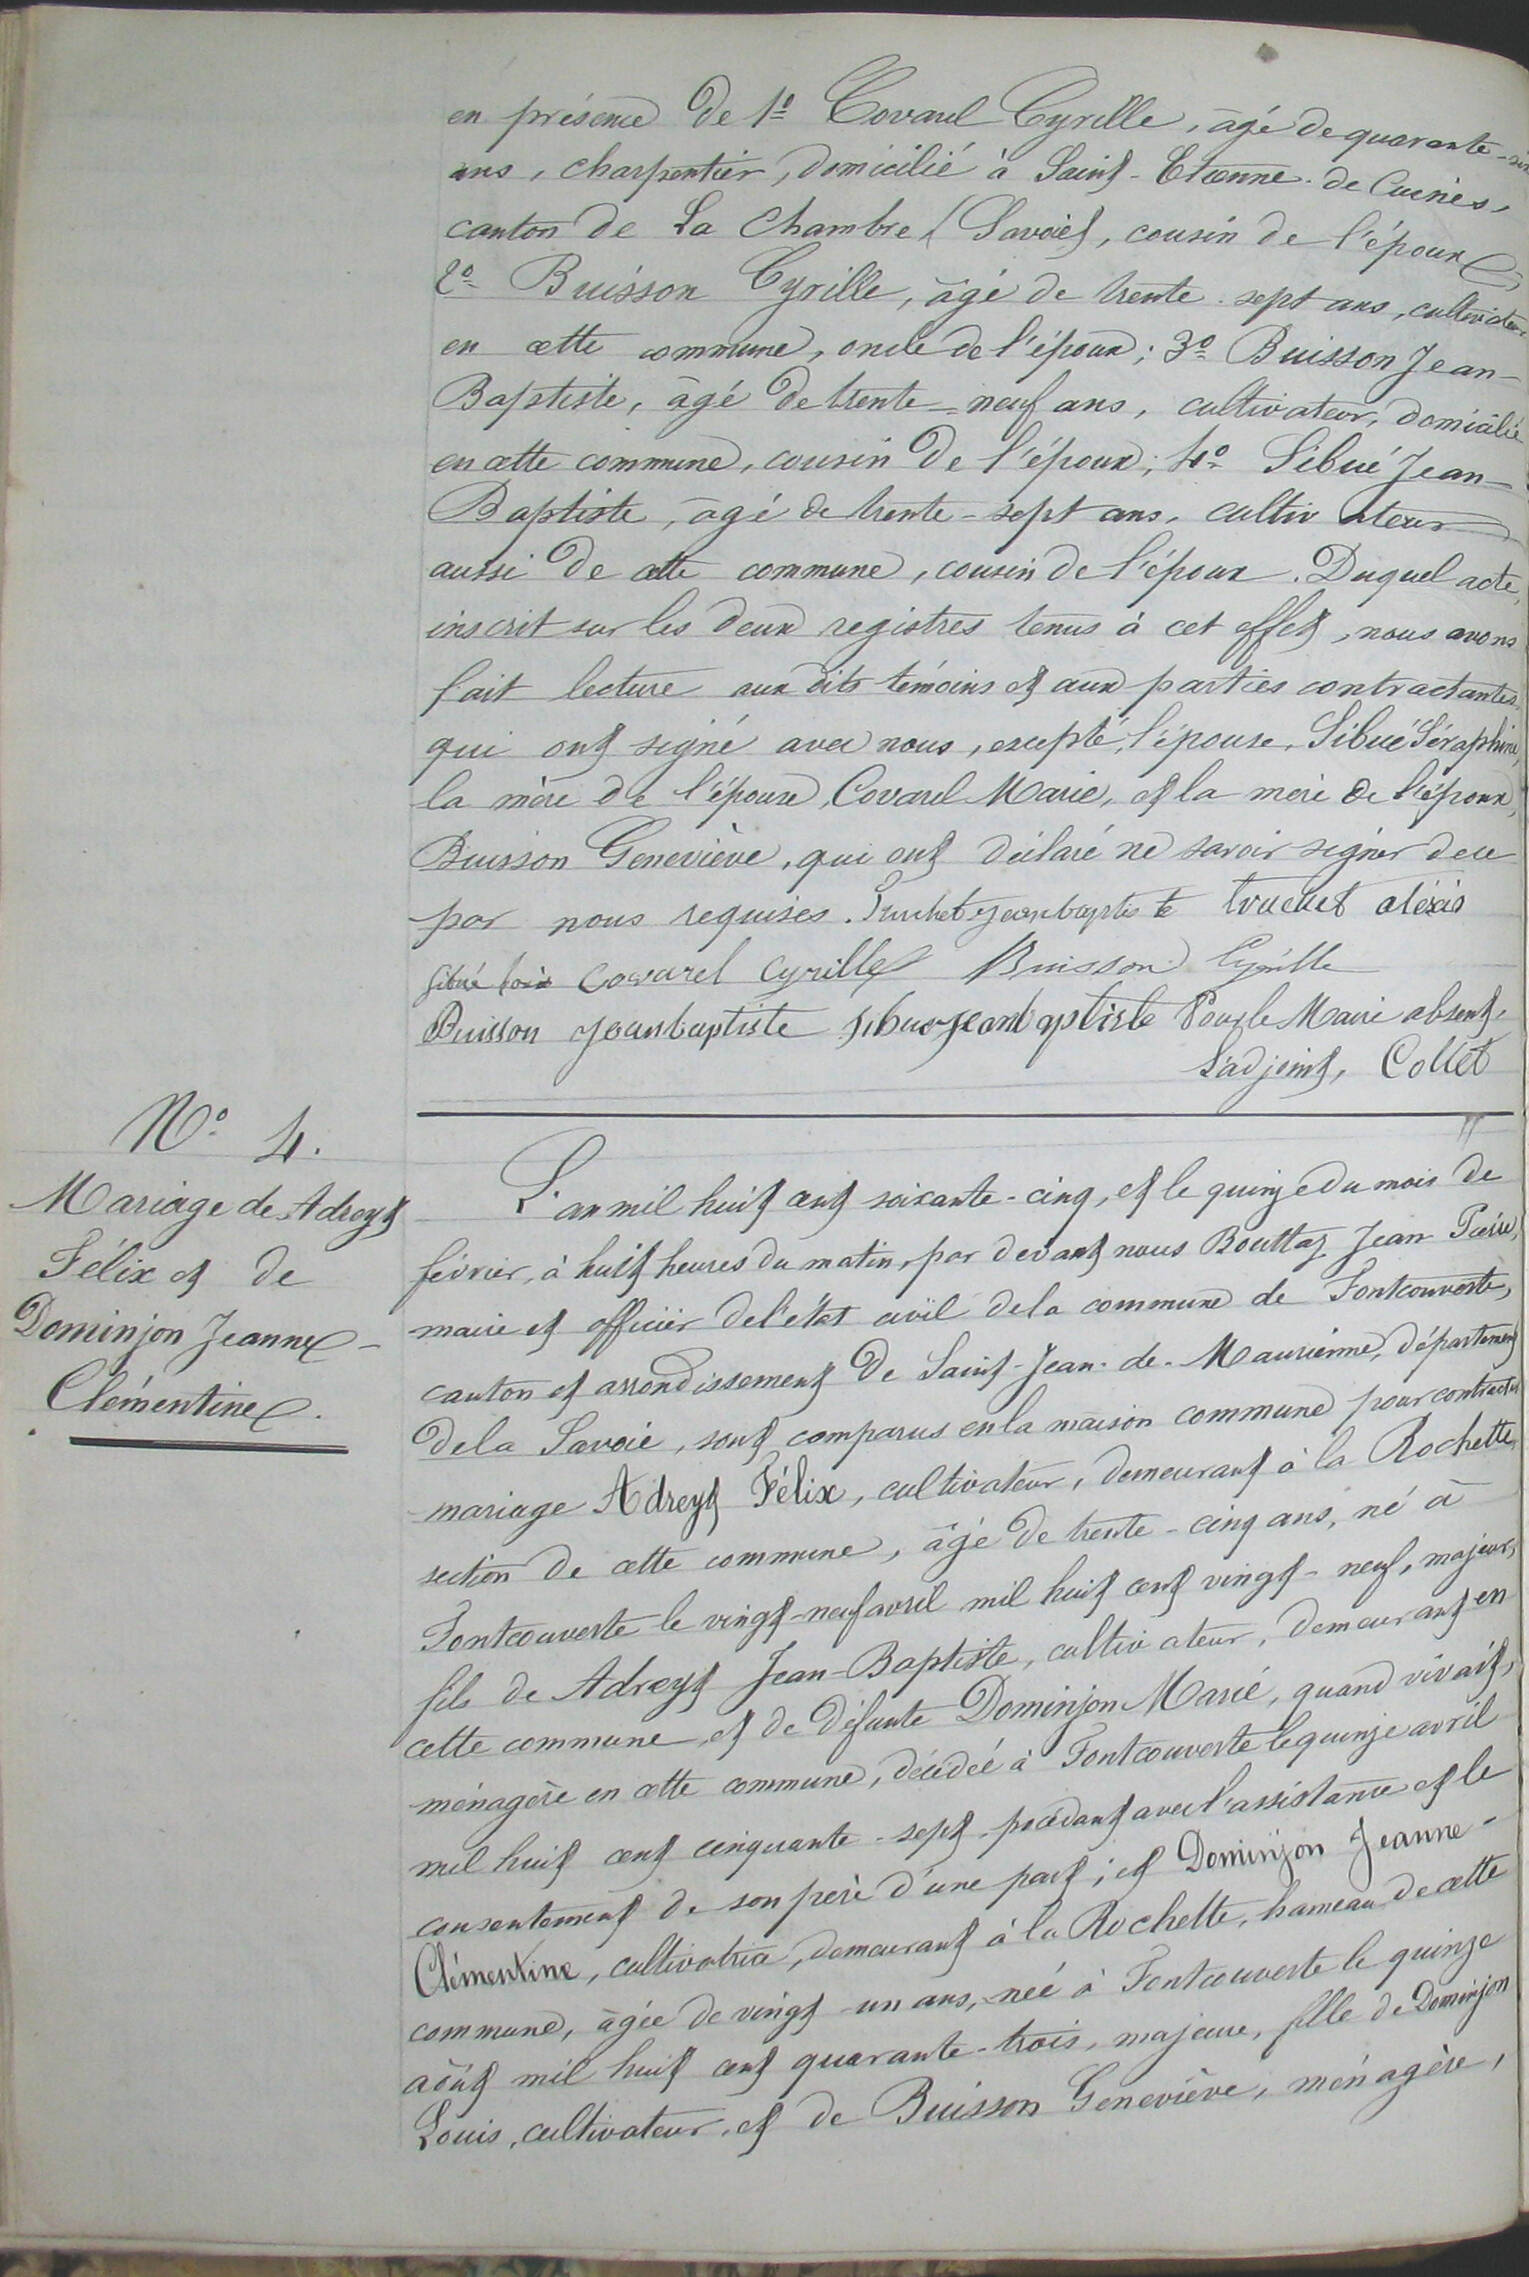 en présence de 1º Covarel Cyrille, âgé de quarante-six
ans, charpentier, domicilié à Saint-Etienne-de Cuines,
canton de La Chambre (Savoie), cousin de l'époux;
2º Buisson Cyrille, âgé de trente-sept ans, cultivateur
en cette commune, oncle de l'époux; 3º Buisson Jean-
Baptiste, âgé de trente-neuf ans, cultivateur, domicilié
en cette commune, cousin de l'époux; 4º Sibué Jean-
Baptiste, âgé de trente-sept ans, cultivateur
aussi de cette commune, cousin de l'époux. Duquel acte,
inscrit sur les deux registres tenus à cet effet, nous avons
fait lecture aux dits témoins et aux parties contractantes,
qui ont signé avec nous, excepté, l'épouse, Sibué Séraphine,
la mère de l'épouse, Covarel Marie, et la mère de l'époux,
Buisson Geneviève, qui ont déclaré ne savoir signer de ce
par nous requises. Truchet jeanbaptiste truchet alexis
Sibué Covarel Cyrille Buisson Cyrille
Buisson jeanbaptiste Sibué jeanbaptiste Pour le Maire absent,
L'adjoint, Collet
Nº 4.
Mariage de Adreyt
Félix et de
Dominjon Jeanne-
Clémentine.
L'an mil huit cent soixante-cinq, et le quinze du mois de
février, à huit heures du matin, par devant nous Bouttaz Jean Pierre,
maire et officier de l'état civil de la commune de Fontcouverte,
canton et arrondissement de Saint-Jean-de-Maurienne, département
de la Savoie, sont comparus en la maison commune pour contracter
mariage Adreyt Félix, cultivateur, demeurant à la Rochette,
section de cette commune, âgé de trente-cinq ans, né à
Fontcouverte le vingt-neuf avril mil huit cent vingt-neuf, majeur,
fils de Adreyt Jean-Baptiste, cultivateur, demeurant en
cette commune, et de défunte Dominjon Marie, quand vivait,
ménagère en cette commune, décédée à Fontcouverte le quinze avril
mil huit cent cinquante-sept, procédant avec l'assistance et le
consentement de son père d'une part; et Dominjon Jeanne-
Clémentine, cultivatrice, demeurant à la Rochette, hameau de cette
commune, âgée de vingt-un ans, née à Fontcouverte le quinze
août mil huit cent quarante-trois, majeure, fille de Dominjon
Louis, cultivateur, et de Buisson Geneviève, ménagère,